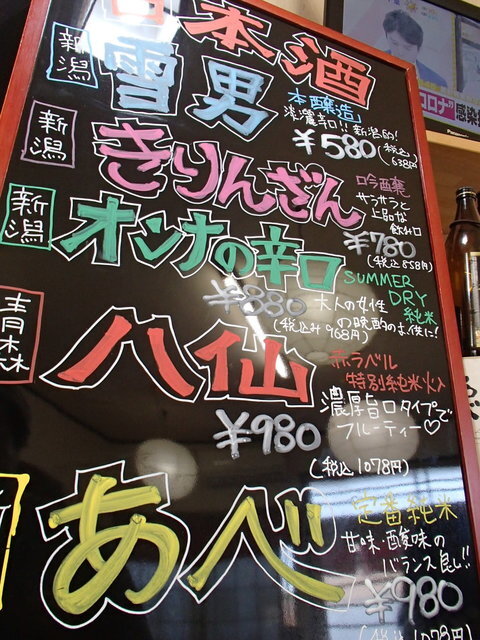 日本酒
新潟
雪男
本醸造
淡麗辛口!!新潟的!
¥580(税込
638円)
新潟
きりんざん
吟醸
サラサラと
上品な
飲み口
¥780
(税込858円)
新潟
オンナの辛口
SUMMER
DRY
純米
¥880
大人の女性
の晩酌のお供に!
(税込み968円)
青森
八仙
赤ラベル
特別純米火入
濃厚旨口タイプで
フルーティー♡
¥980
(税込1078円)
あべ
定番純米
甘味・酸味の
バランス良し!!
¥980
(税込1078円)
コロナ
感染
Panasonic